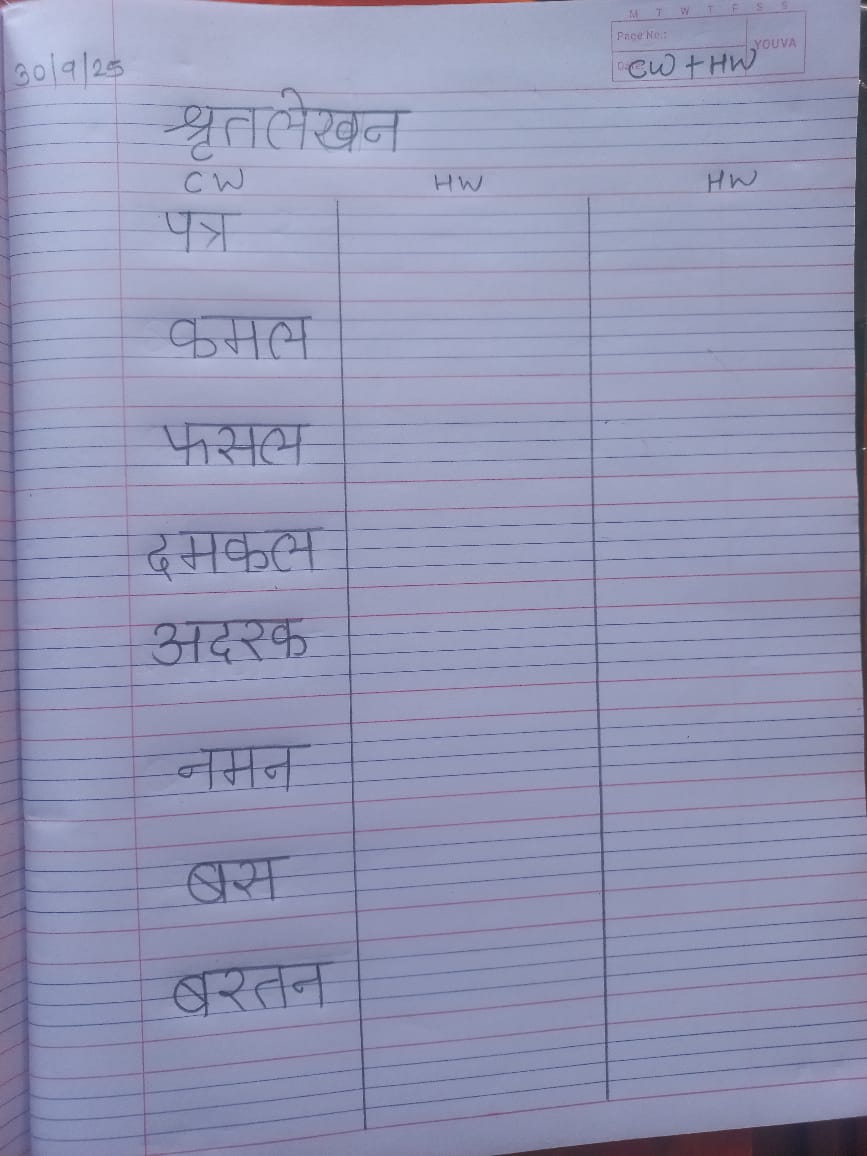 M T W T F S S
Page No.:
YOUVA
Date:
CW + HW
30/9/25
श्रृतलेखन
CW HW HW
पत्र
कमल
फसल
दमकल
अदरक
नमन
बस
बरतन